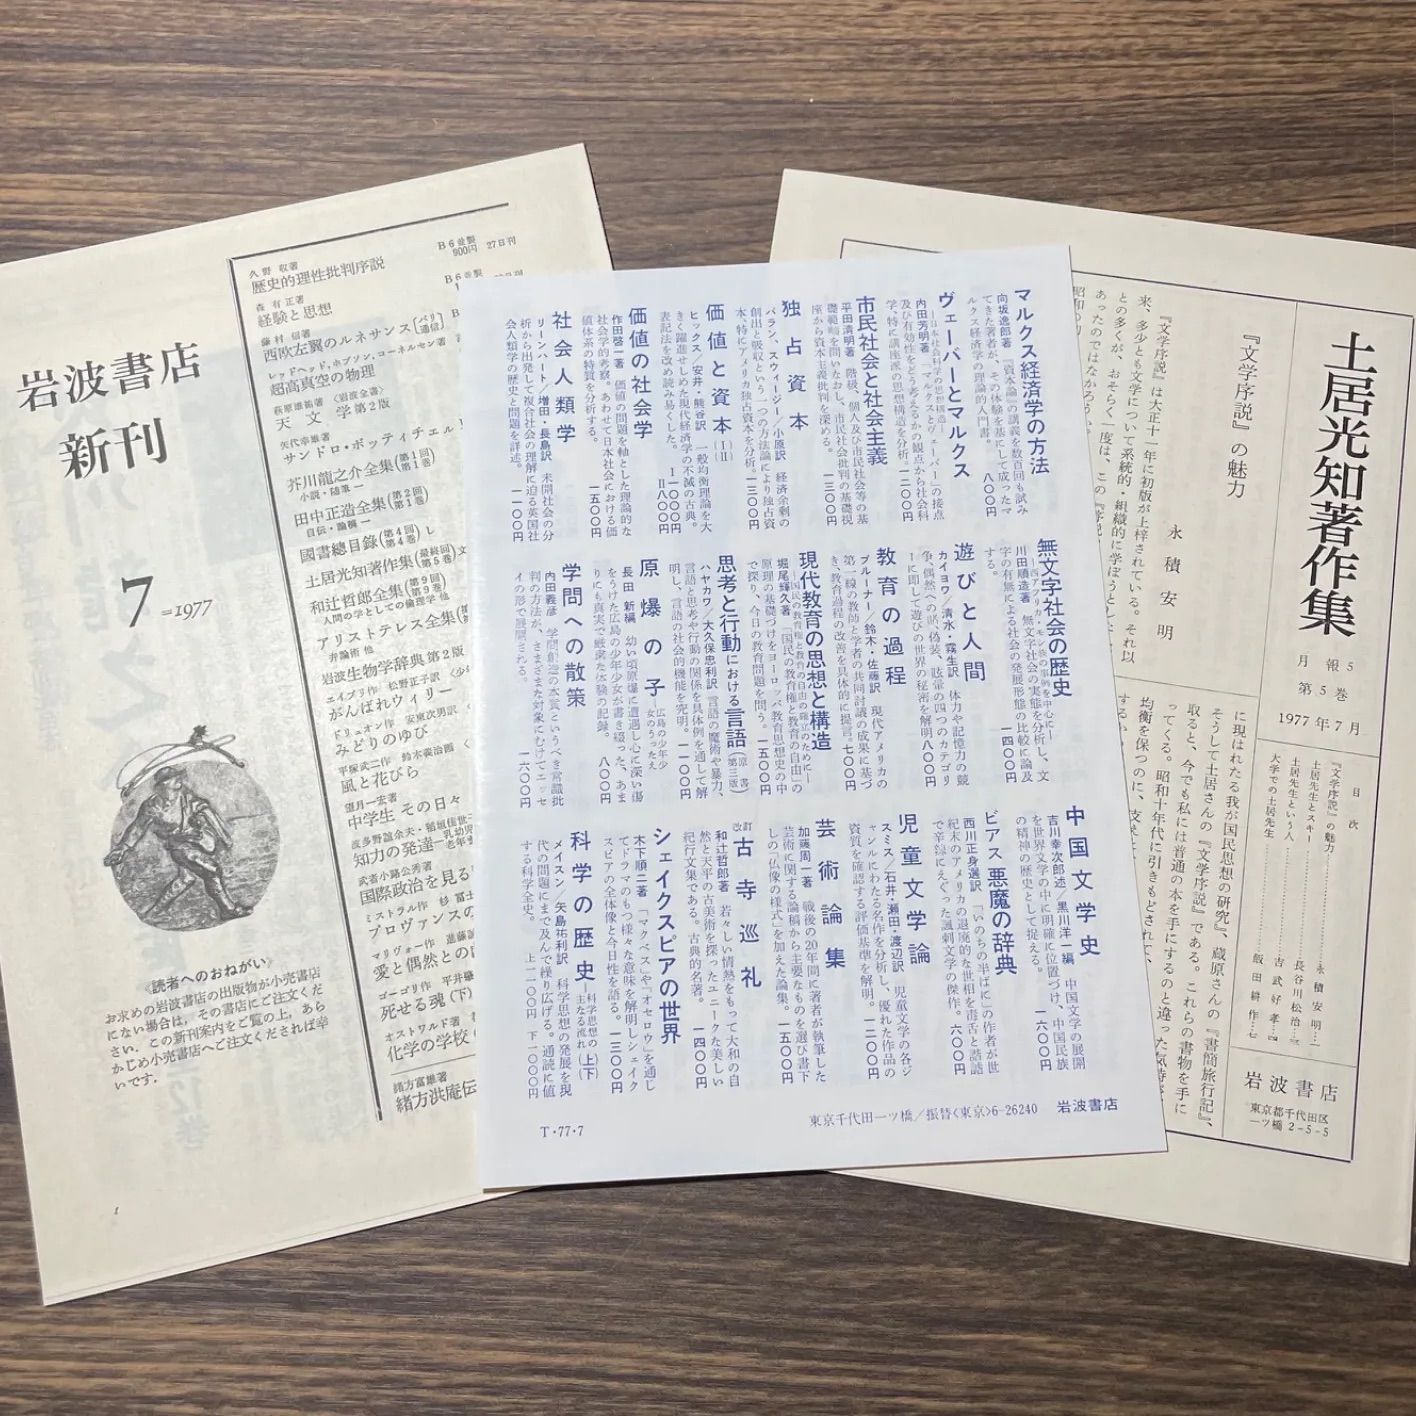 岩波書店
新刊
7=1977
《読者へのおねがい》
お求めの岩波書店の出版物が小売書店
にない場合は，その書店にご注文くだ
さい．この新刊案内をご覧の上，あら
かじめ小売書店へご注文くだされば幸
いです．
1
久野 収著
歴史的理性批判序説
B6並製
900円 27日刊
森 有正著
経験と思想
B6並製
藤村 信著
西欧左翼のルネサンス〔パリ通信〕
レッドヘッド，ホブソン，コーネルセン著
超高真空の物理
萩原雄祐著 〈岩波全書〉
天文学 第2版
矢代幸雄著
サンドロ・ボッティチェルリ
芥川龍之介全集(第1回 第1巻)
小説・随筆 一
田中正造全集(第2回 第1巻)
自伝・論稿 一
國書總目録(第4回 第4巻)し
土居光知著作集(最終回 第5巻)文
和辻哲郎全集(第9回 第9巻)
人間の学としての倫理学 他
アリストテレス全集
弁論術 他
岩波生物学辞典 第2版
エイプリ作 松野正子訳
がんばれウィリー
ドリュオン作 安東次男訳
みどりのゆび
平塚武二作 鈴木義治画
風と花びら
望月一宏著
中学生 その日々
波多野誼余夫・稲垣佳世子
知力の発達—乳幼児 老年
武者小路公秀著
国際政治を見る
ミストラル作 杉 冨士
プロヴァンスの
マリヴォー作 進藤誠
愛と偶然との
ゴーゴリ作 平井肇
死せる魂(下)
オストワルド著
化学の学校
緒方富雄著
緒方洪庵伝
マルクス経済学の方法
向坂逸郎著 『資本論』の講義を数百回も試み
てきた著者が、その体験を基にして成ったマ
ルクス経済学の理論的入門書。 八〇〇円
ヴェーバーとマルクス
—日本社会科学の思想構造—
内田芳明著 「マルクスとヴェーバー」の接点
及び有効性をどう考えるかの観点から社会科
学、特に講座派の思想構造を分析。一二〇〇円
市民社会と社会主義
平田清明著 階級、個人及び市民社会等の基
礎範疇を問いなおし、市民社会批判の基礎視
座から資本主義批判を深める。 一三〇〇円
独占資本
バラン、スウィージー／小原訳 経済余剰の
創出と吸収という一つの方法論により独占資
本、特にアメリカ独占資本を分析。一三〇〇円
価値と資本(ⅠⅡ)
ヒックス／安井・熊谷訳 一般均衡理論を大
きく躍進せしめた現代経済学の不滅の古典。
表記法を改め読み易くした。 Ⅰ一〇〇〇円 Ⅱ八〇〇円
価値の社会学
作田啓一著 価値の問題を軸とした理論的な
社会学的考察。あわせて日本社会における価
値体系の特質を分析する。 一五〇〇円
社会人類学
リーンハート／増田・長島訳 未開社会の分
析から出発して複合社会の理解に迫る英国社
会人類学の歴史と問題を詳述。 一一〇〇円
無文字社会の歴史
—西アフリカ・モシ族の事例を中心に—
川田順造著 無文字社会の実態を分析し、文
字の有無による社会の発展形態の比較に論及
する。 一四〇〇円
遊びと人間
カイヨワ／清水・霧生訳 体力や記憶力の競
争、偶然への賭、偽装、眩暈の四つのカテゴリ
ーに即して遊びの世界の秘密を解明八〇〇円
教育の過程
ブルーナー／鈴木・佐藤訳 現代アメリカの
第一線の教師と学者の共同討議の成果に基づ
き、教育過程の改善を具体的に提言。七〇〇円
現代教育の思想と構造
—国民の教育権と教育の自由の確立のために—
堀尾輝久著 「国民の教育権と教育の自由」の
原理の基礎づけをヨーロッパ教育思想史の中
で探り、今日の教育問題を問う。一五〇〇円
思考と行動における言語(原書第三版)
ハヤカワ／大久保忠利訳 言語の魔術や暴力、
言語と思考や行動の関係を具体例を通して解
明し、言語の社会的機能を究明。 一一〇〇円
原爆の子—広島の少年少女のうったえ
長田 新編 幼い頃原爆に遭遇し心に深い傷
をうけた広島の少年少女が書き綴った、あま
りにも真実で厳粛な体験の記録。 八〇〇円
学問への散策
内田義彦 学問創造の本質というべき常識批
判の方法が、さまざまな対象にむけてエッセ
イの形で展開される。 一六〇〇円
中国文学史
吉川幸次郎述／黒川洋一編 中国文学の展開
を世界文学の中に明確に位置づけ、中国民族
の精神の歴史として捉える。 一六〇〇円
ビアス悪魔の辞典
西川正身選訳 『いのちの半ばに』の作者が世
紀末のアメリカの退廃的な世相を毒舌と諧謔
で辛辣にえぐった諷刺文学の傑作。六〇〇円
児童文学論
スミス／石井・瀬田・渡辺訳 児童文学の各ジ
ャンルにわたる名作を分析し、優れた作品の
資質を確認する評価基準を解明。一二〇〇円
芸術論集
加藤周一著 戦後の20年間に著者が執筆した
芸術に関する論稿から主要なものを選び書下
しの「仏像の様式」を加えた論集。一五〇〇円
改訂 古寺巡礼
和辻哲郎著 若々しい情熱をもって大和の自
然と天平の古美術を探ったユニークな美しい
紀行文集である。古典的名著。 一四〇〇円
シェイクスピアの世界
木下順二著 『マクベス』や『オセロウ』を通じ
てドラマのもつ様々な意味を解明しシェイク
スピアの全体像と今日性を語る。一三〇〇円
科学の歴史—科学思想の主なる流れ—(上下)
メイスン／矢島祐利訳 科学思想の発展を現
代の問題にまで及んで繰り広げる。通読に値
する科学全史。 上一一〇〇円 下一〇〇〇円
T・77・7
東京千代田一ツ橋／振替〈東京〉6-26240 岩波書店
土居光知著作集
月報5
第5巻
1977年7月
目次
『文学序説』の魅力………永積安明…一
土居先生とスキー………長谷川松治…三
土居先生という人………吉武好孝…四
大学での土居先生………飯田耕作…七
岩波書店
東京都千代田区
一ツ橋2-5-5
『文学序説』の魅力
永積安明
『文学序説』は大正十一年に初版が上梓されている。それ以
来、多少とも文学について系統的・組織的に学ぼうとしたほ
との多くが、おそらく一度は、この『序説』
あったのではなかろうか。
に現はれたる我が国民思想の研究』、蔵原さんの『書簡旅行記』、
そうして土居さんの『文学序説』である。これらの書物を手に
取ると、今でも私には普通の本を手にするのと違った気持が
ってくる。昭和十年代に引きもどされて、
均衡を保つのに、支え